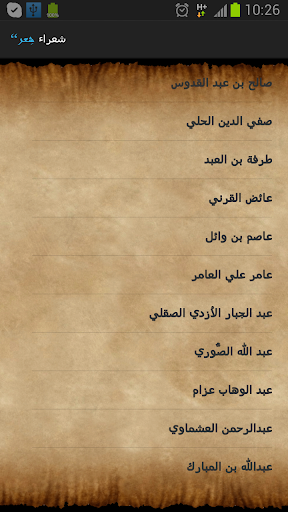 10:26
شعراء
صالح بن عبد القدوس
صفي الدين الحلي
طرفة بن العبد
عائض القرني
عاصم بن وائل
عامر علي العامر
عبد الجبار الأزدي الصقلي
عبد الله الصُّوري
عبد الوهاب عزام
عبدالرحمن العشماوي
عبدالله بن المبارك